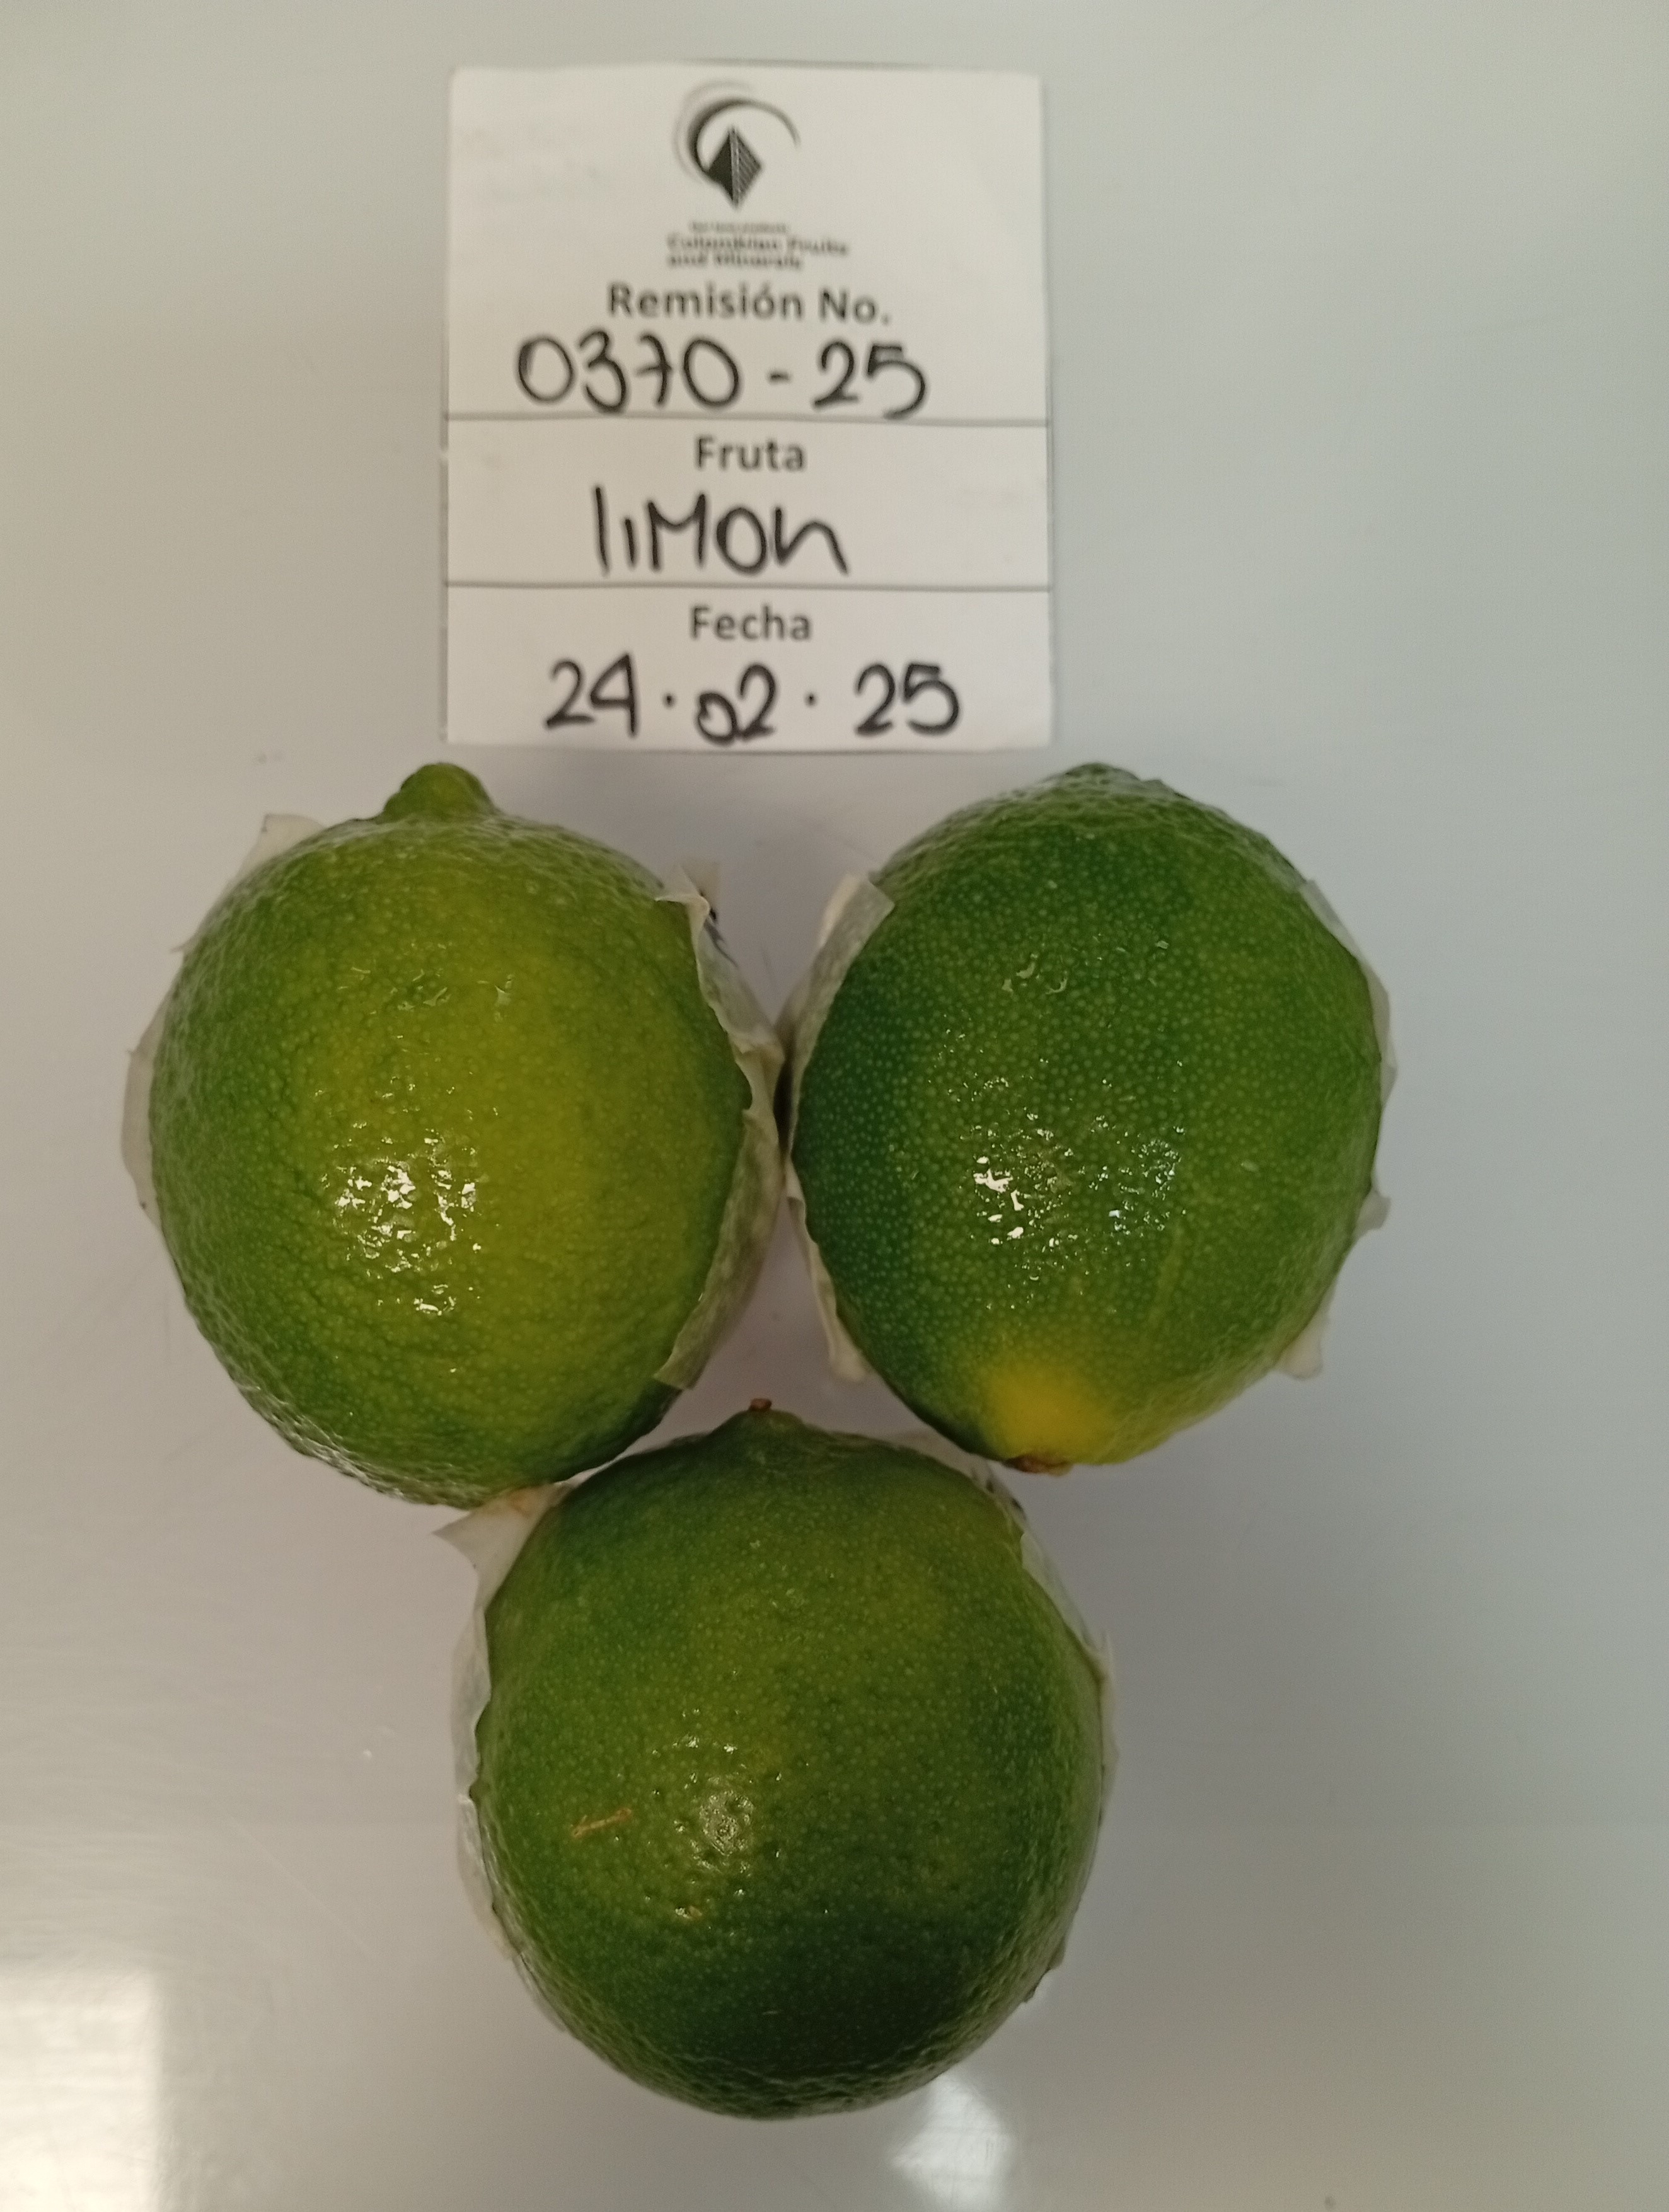 Colombian Fruits
and Minerals
Remisión No.
0370-25
Fruta
liMon
Fecha
24.02.25